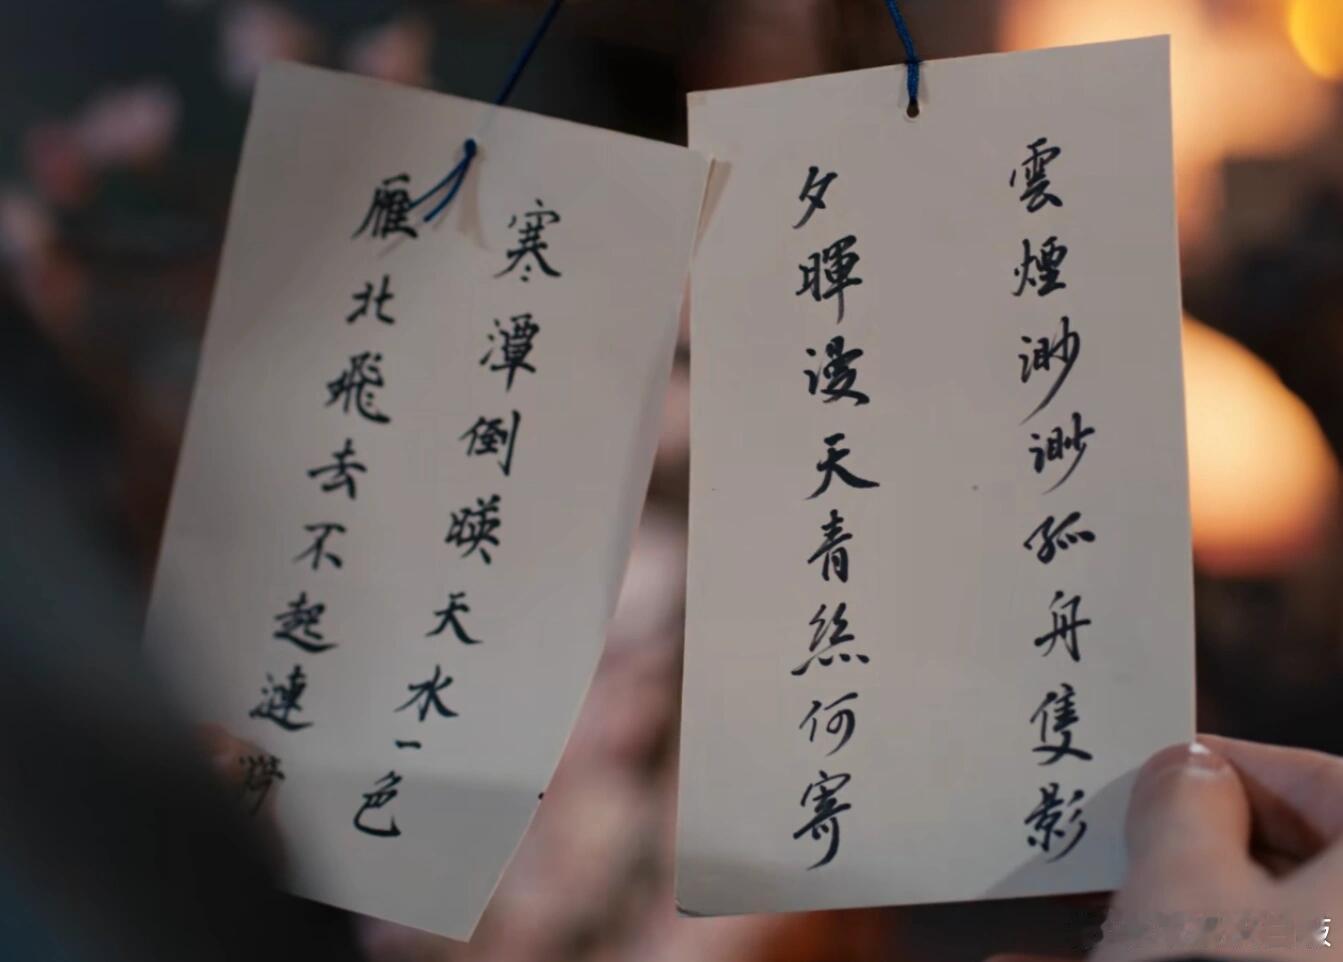 雲煙渺渺孤舟隻影
夕暉漫天青絲何寄
寒潭倒暎天水一色
雁北飛去不起漣漪